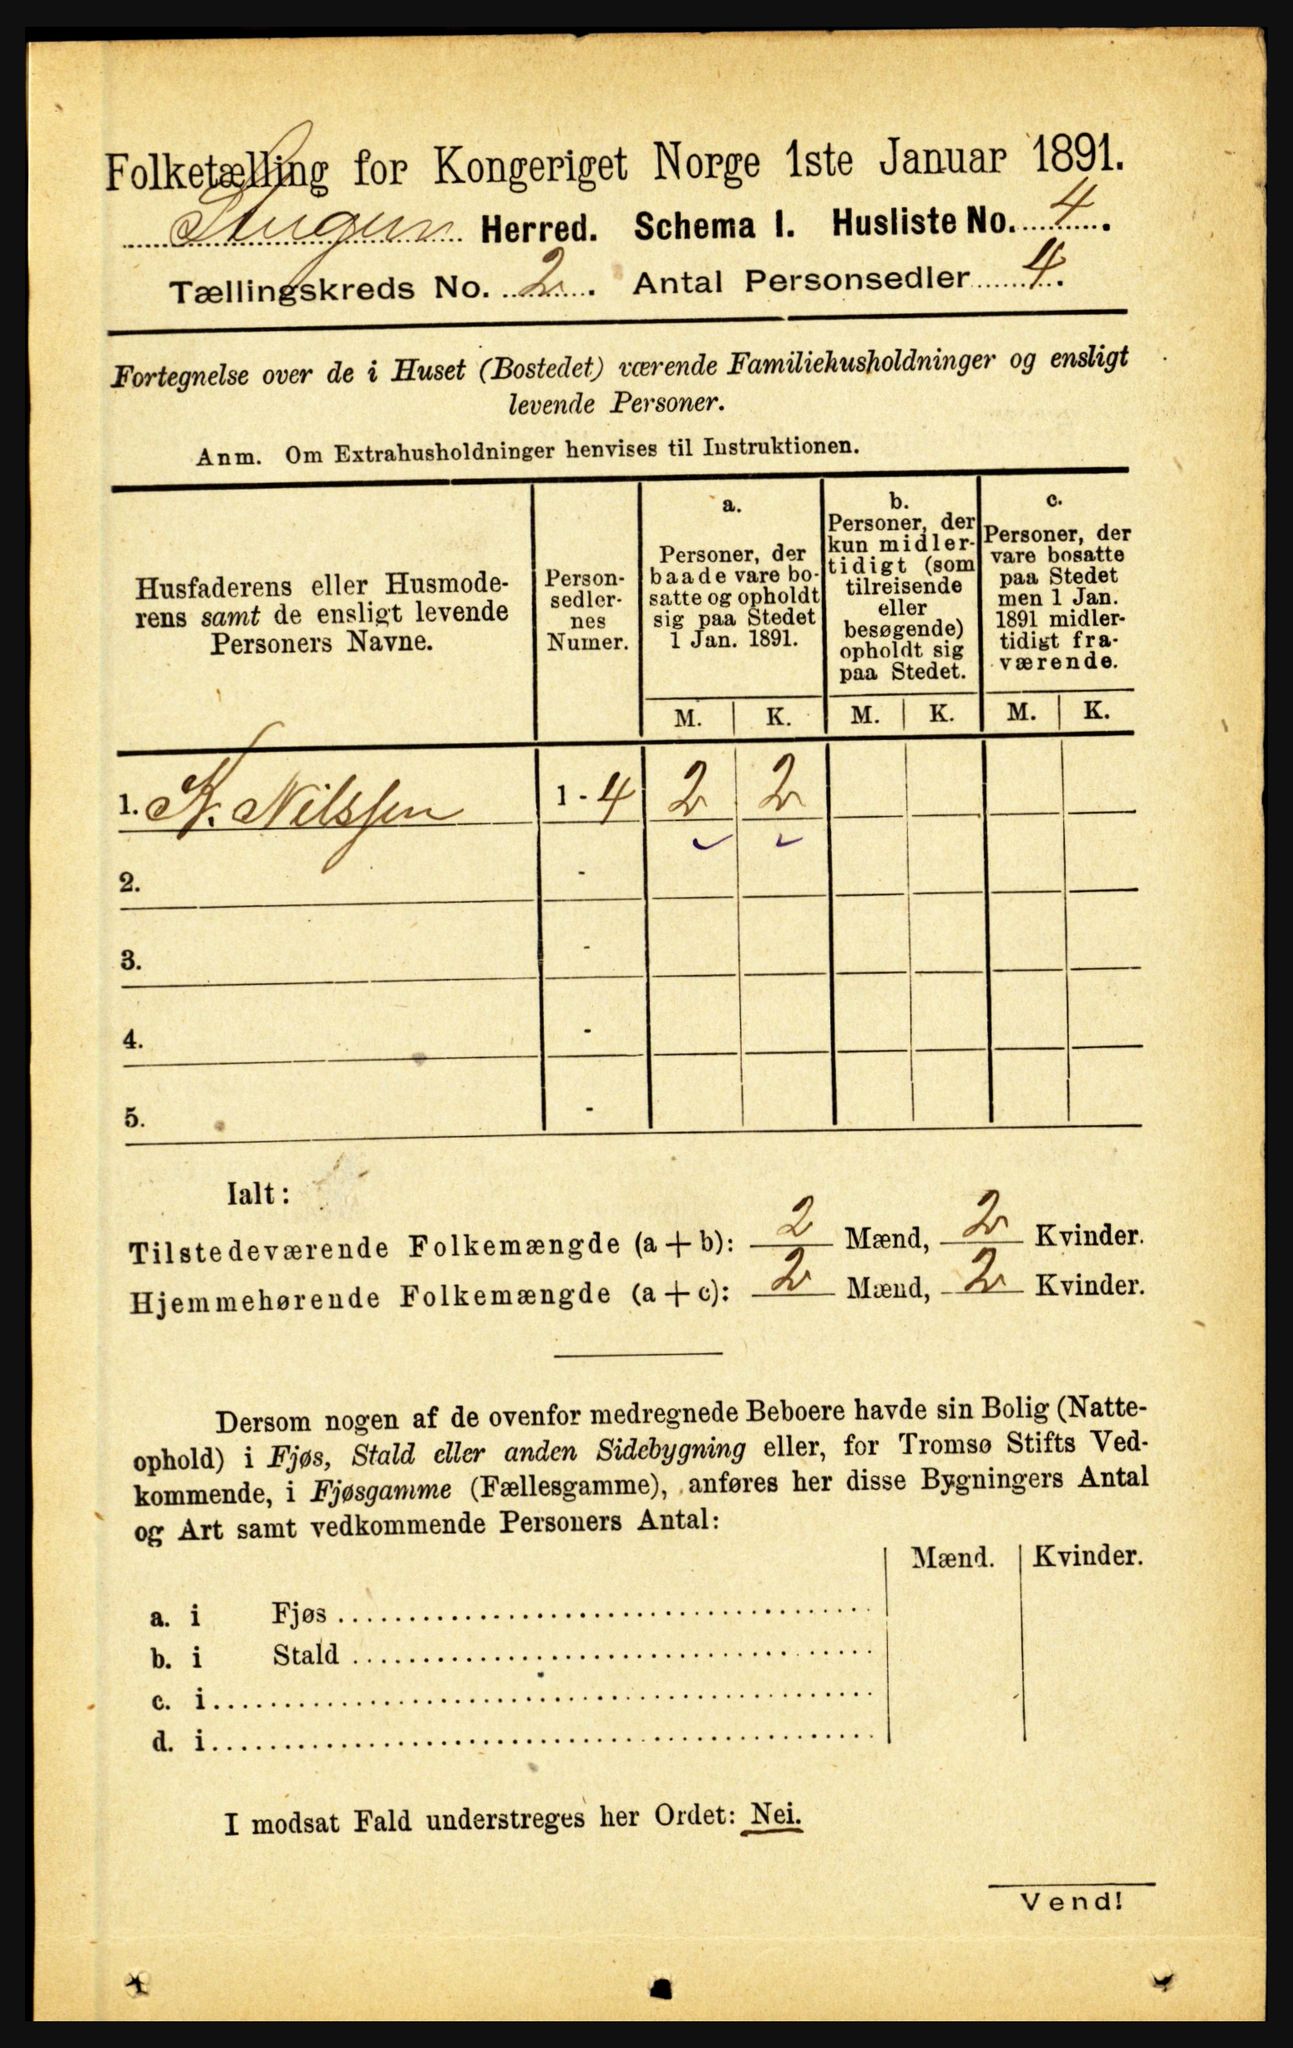 Folketælling for Kongeriget Norge 1ste Januar 1891.
Herred. Schema I. Husliste No. 4.
Tællingskreds No. 2. Antal Personsedler 4.
Fortegnelse over de i Huset (Bostedet) værende Familiehusholdninger og ensligt
levende Personer.
Anm. Om Extrahusholdninger henvises til Instruktionen.
Husfaderens eller Husmode-
rens samt de ensligt levende
Personers Navne.
Person-
sedler-
nes
Numer.
a.
Personer, der
baade vare bo-
satte og opholdt
sig paa Stedet
1 Jan. 1891.
b.
Personer, der
kun midler-
tidigt (som
tilreisende
eller
besøgende)
opholdt sig
paa Stedet.
c.
Personer, der
vare bosatte
paa Stedet
men 1 Jan.
1891 midler-
tidigt fra-
værende.
M. K. M. K. M. K.
1. N. Nilssen 1 - 4 2 2
2. -
3. -
4. -
5. -
Ialt:
Tilstedeværende Folkemængde (a + b): 2 Mænd, 2 Kvinder.
Hjemmehørende Folkemængde (a + c): 2 Mænd, 2 Kvinder.
Dersom nogen af de ovenfor medregnede Beboere havde sin Bolig (Natte-
ophold) i Fjøs, Stald eller anden Sidebygning eller, for Tromsø Stifts Ved-
kommende, i Fjøsgamme (Fællesgamme), anføres her disse Bygningers Antal
og Art samt vedkommende Personers Antal:
Mænd. Kvinder.
a. i Fjøs
b. i Stald
c. i
d. i
I modsat Fald understreges her Ordet: Nei.
Vend!